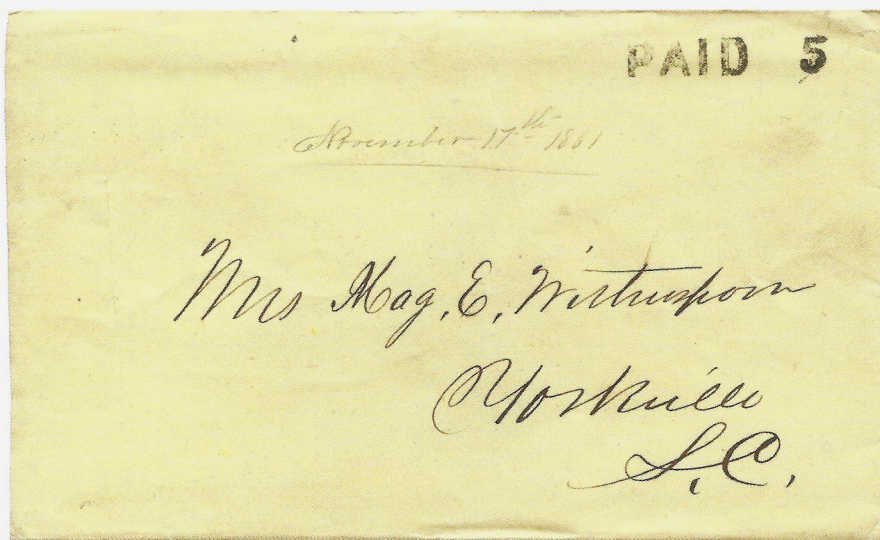 PAID 5
November 17th 1861
Mrs Mag. E. Witherspoon
Yorkville
S. C.